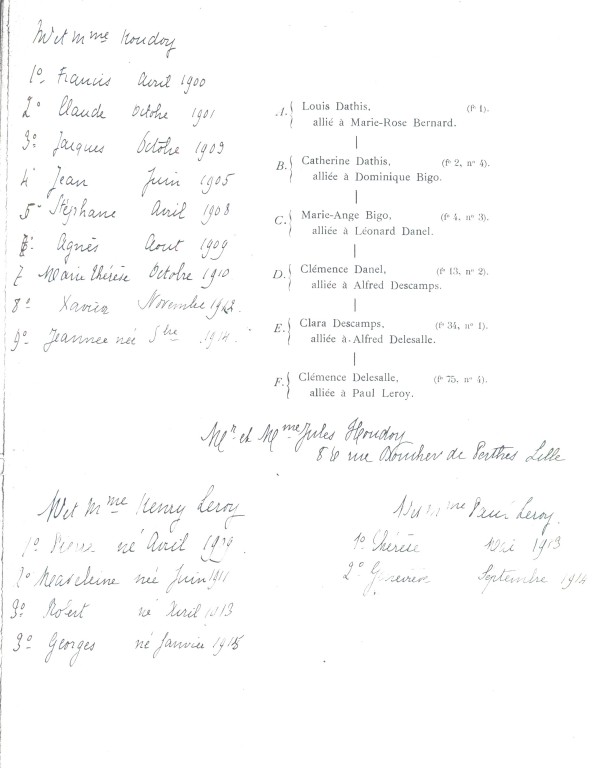 M et Mme Houdoy
1º Francis Avril 1900
2º Claude Octobre 1901
3º Jacques Octobre 1903
4º Jean Juin 1905
5º Stéphane Avril 1908
6º Agnès Aout 1909
7 Marie Thérèse Octobre 1910
8º Xavier Novembre 1912
9º Jeanne née 1914
A. Louis Dathis, (fº 1).
allié à Marie-Rose Bernard.
B. Catherine Dathis, (fº 2, nº 4).
alliée à Dominique Bigo.
C. Marie-Ange Bigo, (fº 4, nº 3).
alliée à Léonard Danel.
D. Clémence Danel, (fº 13, nº 2).
alliée à Alfred Descamps.
E. Clara Descamps, (fº 34, nº 1).
alliée à Alfred Delesalle.
F. Clémence Delesalle, (fº 75, nº 4).
alliée à Paul Leroy.
Mr et Mme Jules Houdoy
86 rue Boucher de Perthes Lille
M et Mme Henry Leroy
1º Pierre né Avril
2º Madeleine née Juin 1911
3º Robert né Avril 1913
3º Georges né Janvier 1915
M et Mme Paul Leroy
1º Thérèse Mai 1913
2º Geneviève Septembre 1914